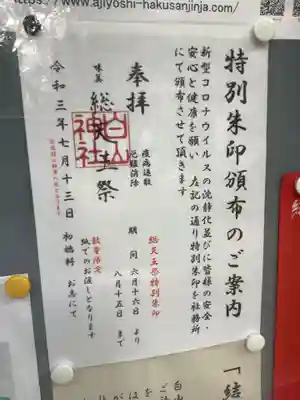 https://www.ajiyoshi-hakusanjinja.com/
特別朱印頒布のご案内
新型コロナウイルスの沈静化並びに皆様の安全・
安心と健康を願い 左記の通り特別朱印を社務所
にて頒布させて頂きます
奉拝
疫病退散
厄難消除
味美
総天王祭
白山神社
令和三年七月十三日
総天王祭特別朱印
期間 六月十六日 より
八月十五日 まで
数量限定
紙でのお渡しとなります
初穂料 お志にて
「結